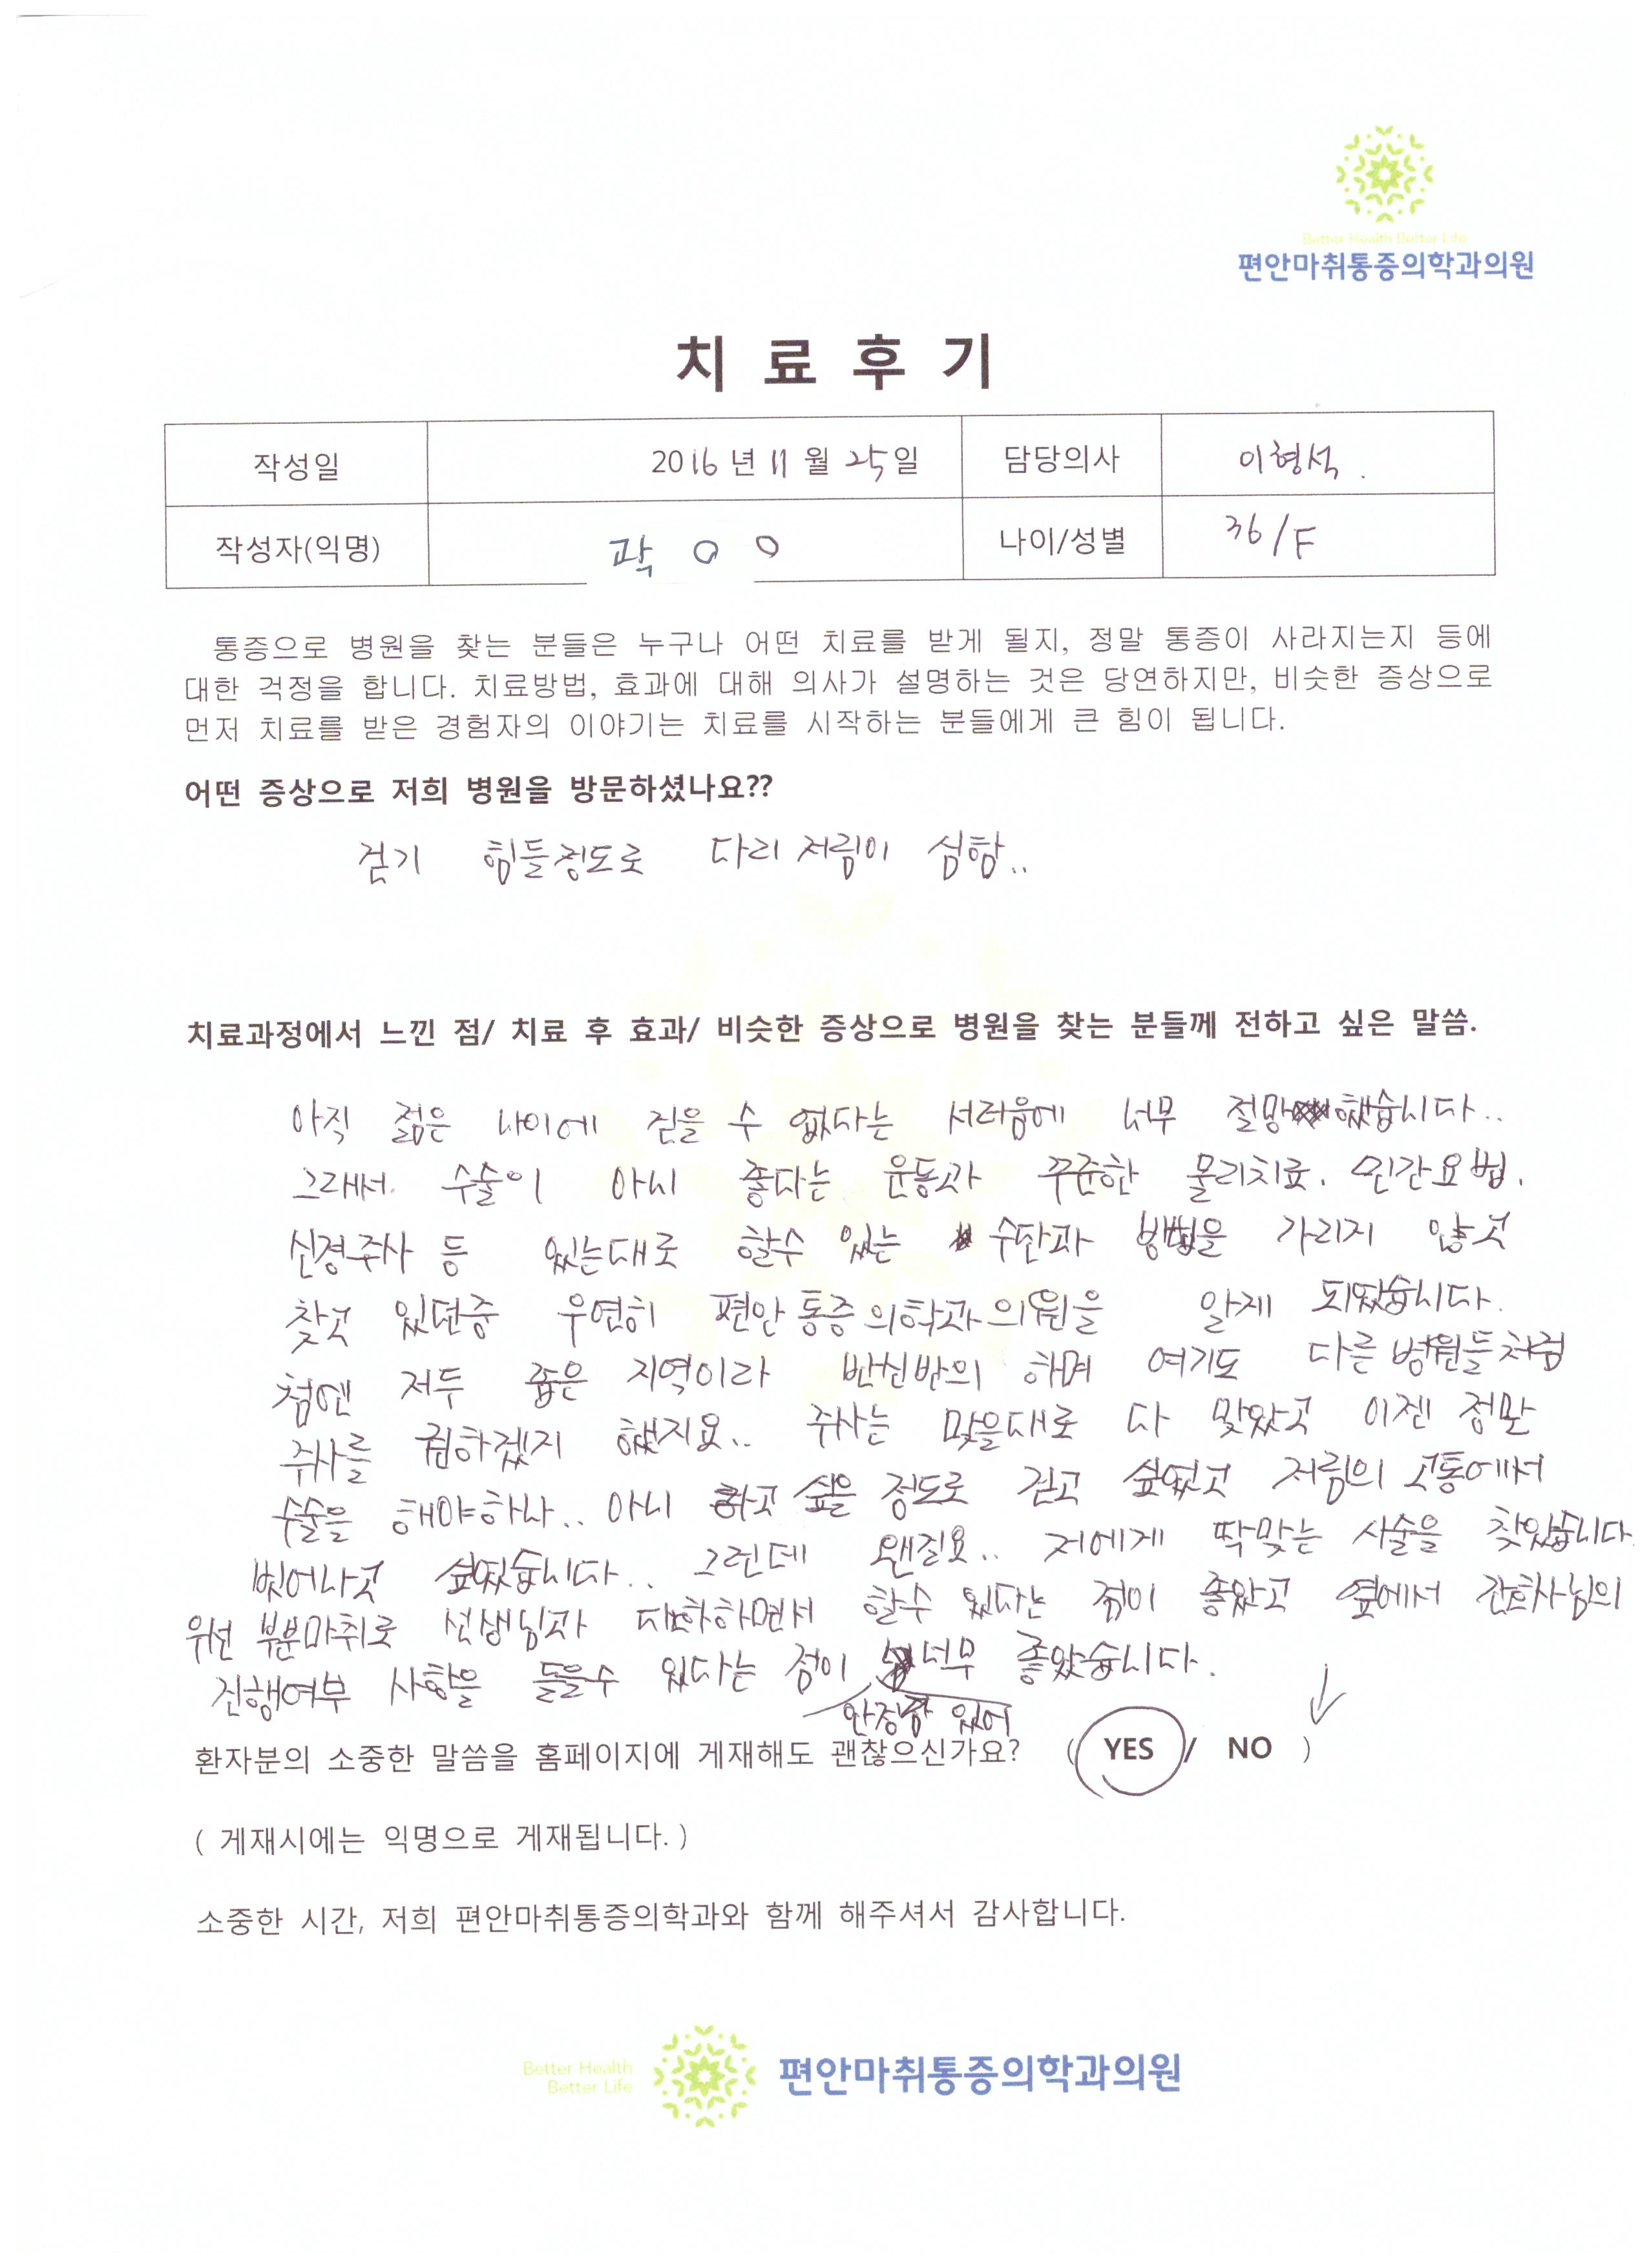 Better Health Better Life
편안마취통증의학과의원
치 료 후 기
작성일 2016 년 11 월 25 일 담당의사 이형석.
작성자(익명) 곽 O O 나이/성별 36/F
통증으로 병원을 찾는 분들은 누구나 어떤 치료를 받게 될지, 정말 통증이 사라지는지 등에
대한 걱정을 합니다. 치료방법, 효과에 대해 의사가 설명하는 것은 당연하지만, 비슷한 증상으로
먼저 치료를 받은 경험자의 이야기는 치료를 시작하는 분들에게 큰 힘이 됩니다.
어떤 증상으로 저희 병원을 방문하셨나요??
걷기 힘들정도로 다리 저림이 심함..
치료과정에서 느낀 점/ 치료 후 효과/ 비슷한 증상으로 병원을 찾는 분들께 전하고 싶은 말씀.
아직 젊은 나이에 걷을 수 없다는 서러움에 너무 절망했습니다..
그래서. 수술이 아니 좋다는 운동과 꾸준한 물리치료. 민간요법.
신경주사 등 있는대로 할수 있는 수단과 방법을 가리지 않고
찾고 있던중 우연히 편안통증의학과의원을 알게 되었습니다.
첨엔 저두 좁은 지역이라 반신반의 하며 여기도 다른 병원들처럼
주사를 권하겠지 했지요.. 주사는 맞을대로 다 맞았고 이젠 정말
수술을 해야하나.. 아니 하고 싶을 정도로 걷고 싶었고 저림의 고통에서
벗어나고 싶었습니다.. 그런데 왠질요.. 저에게 딱맞는 시술을 찾았습니다.
위선 부분마취로 선생님과 대화하면서 할수 있다는 점이 좋았고 옆에서 간호사님의
진행여부 사항을 들을수 있다는 점이 너무 좋았습니다.
안정감 있어
환자분의 소중한 말씀을 홈페이지에 게재해도 괜찮으신가요? ( YES / NO )
( 게재시에는 익명으로 게재됩니다. )
소중한 시간, 저희 편안마취통증의학과와 함께 해주셔서 감사합니다.
Better Health
Better Life
편안마취통증의학과의원